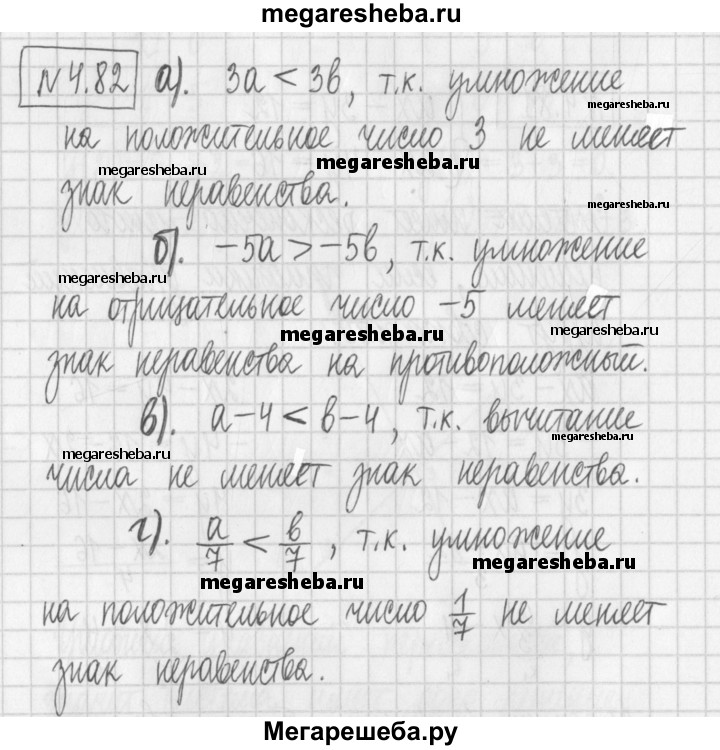 megaresheba.ru
№ 4.82 а). 3а < 3в, т.к. умножение
megaresheba.ru
на положительное число 3 не меняет
megaresheba.ru megaresheba.ru
знак неравенства.
megaresheba.ru
б). -5а > -5в, т.к. умножение
megaresheba.ru
на отрицательное число -5 меняет
megaresheba.ru megaresheba.ru
знак неравенства на противоположный.
в). а-4 < в-4, т.к. вычитание
megaresheba.ru megaresheba.ru
числа не меняет знак неравенства.
г). а/7 < в/7, т.к. умножение
megaresheba.ru megaresheba.ru
на положительное число 1/7 не меняет
знак неравенства.
Мегарешеба.ру